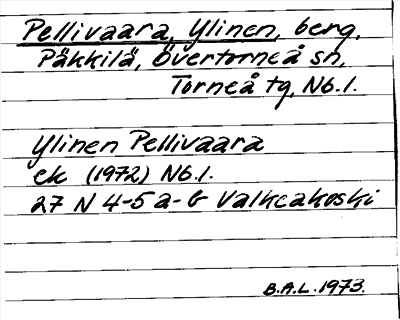 Pellivaara, Ylinen, berg,
Päkkilä, Övertorneå sn,
Torneå tg, Nb.l.
Ylinen Pellivaara
ek (1972) Nb.l.
27 N 4-5 a-b Valkeakoski
B.A.L. 1973.